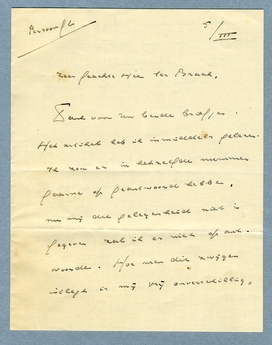 Persoonlijk
5/III
Zeer geachte Heer ter Braak,
Dank voor Uw beide briefjes.
Het artikel heb ik inmiddels gelezen.
Ik zou er in hetzelfde nummer
gaarne op geantwoord hebben,
nu mij die gelegenheid niet is
gegeven zal ik er niet op ant-
woorden. Hoe men dit zwijgen
uitlegt is mij vrij onverschillig.